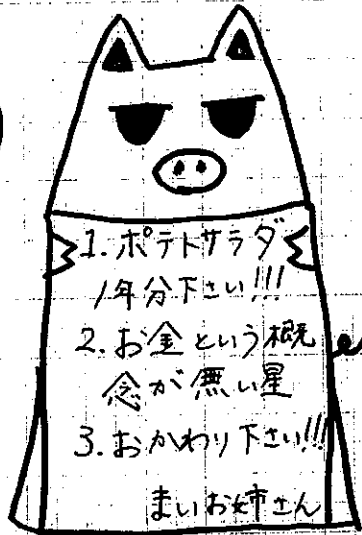 1. ポテトサラダ
1年分下さい!!!
2. お金という概
念が無い星
3. おかわり下さい!!!
まいお姉さん